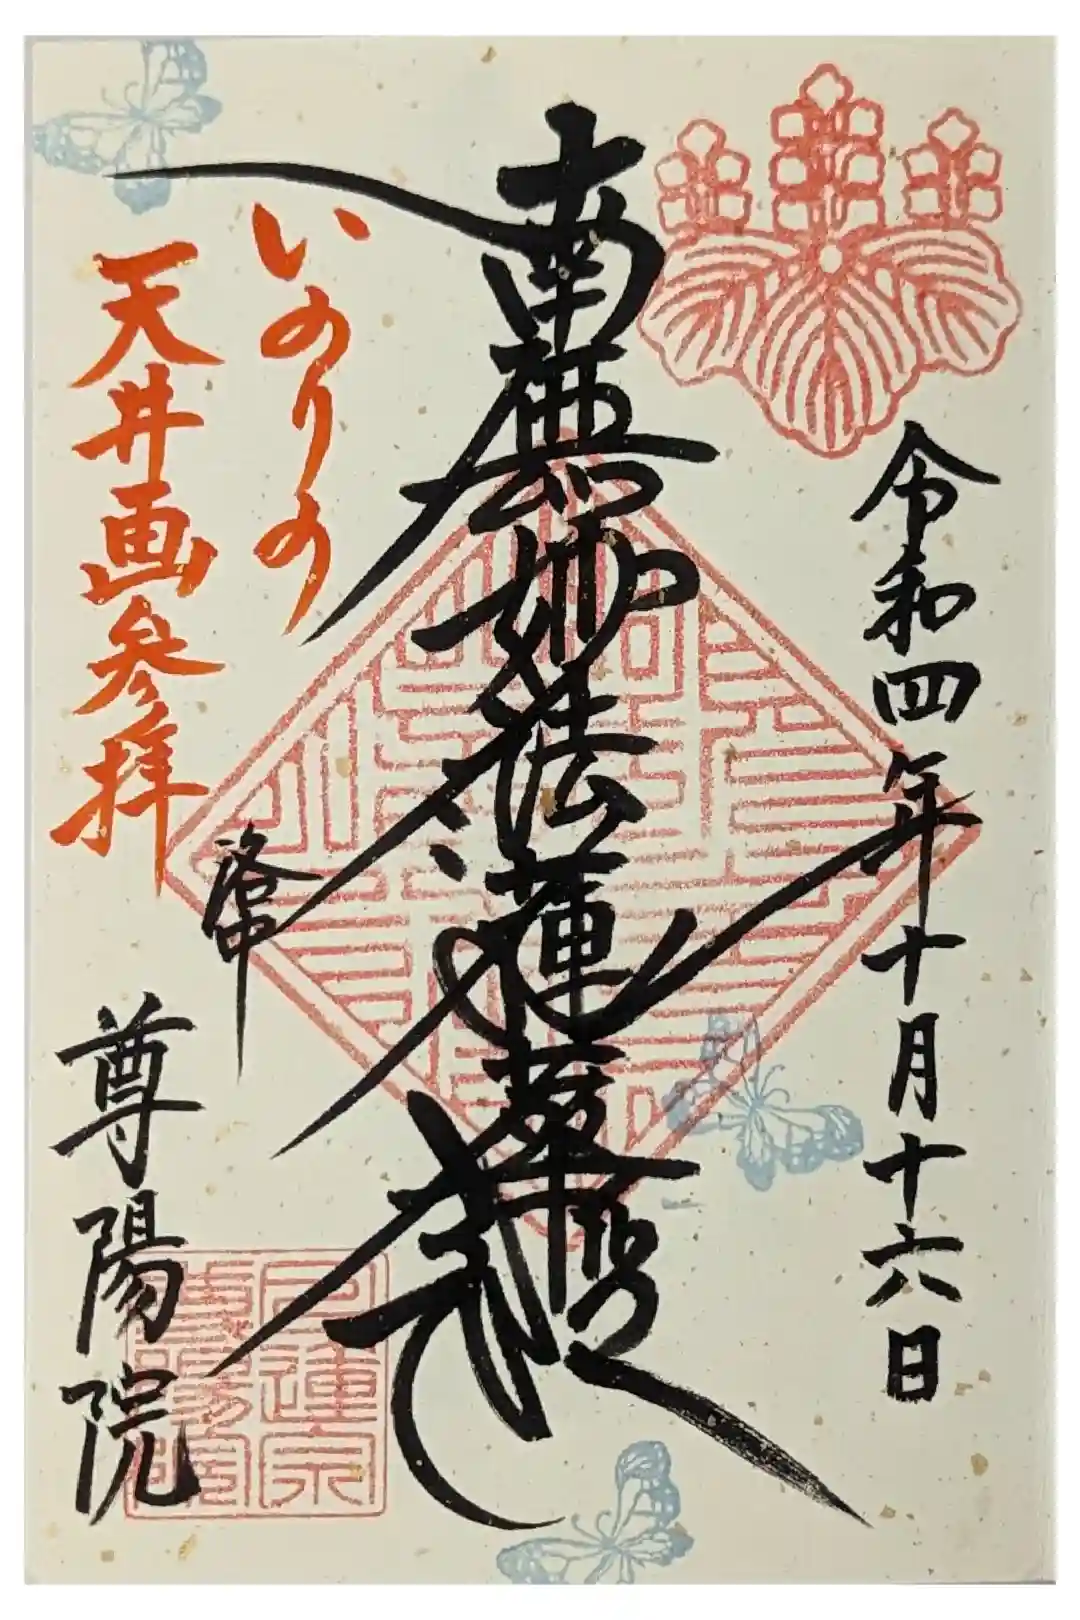 令和四年十月十六日
南無妙法蓮華経
いのりの
天井画参拝
洛中
尊陽院
日蓮宗
尊陽院